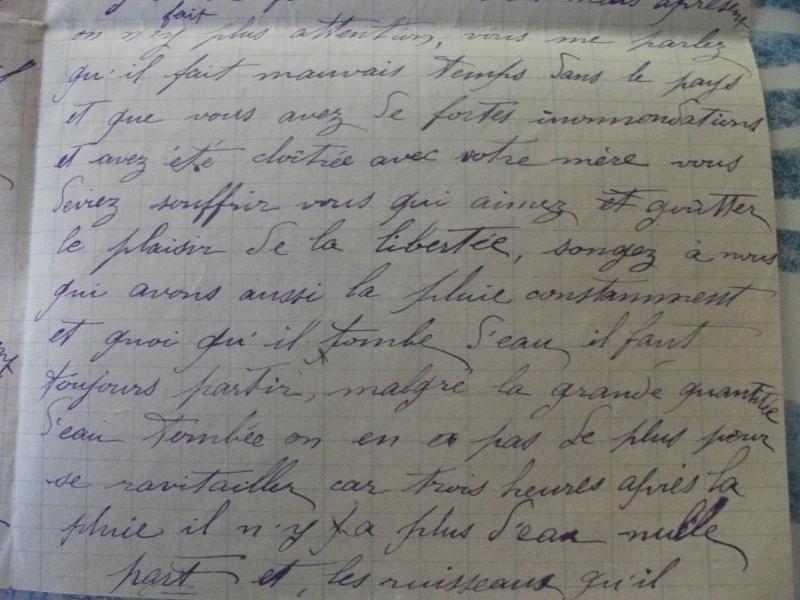 mais apresent
fait
on n'y plus attention, vous me parlez
qu'il fait mauvais temps dans le pays
et que vous avez de fortes innonondations
et avez été cloîtrée avec votre mère vous
devez souffrir vous qui aimez et goûtter
le plaisir de la libertée, songez à nous
qui avons aussi la pluie constamment
et quoi qu'il tombe d'eau il faut
toujours partir, malgré la grande quantitée
d'eau tombée on en a pas de plus pour
se ravitailler car trois heures après la
pluie il n'y a plus d'eau nulle
part et, les ruisseaux qu'il